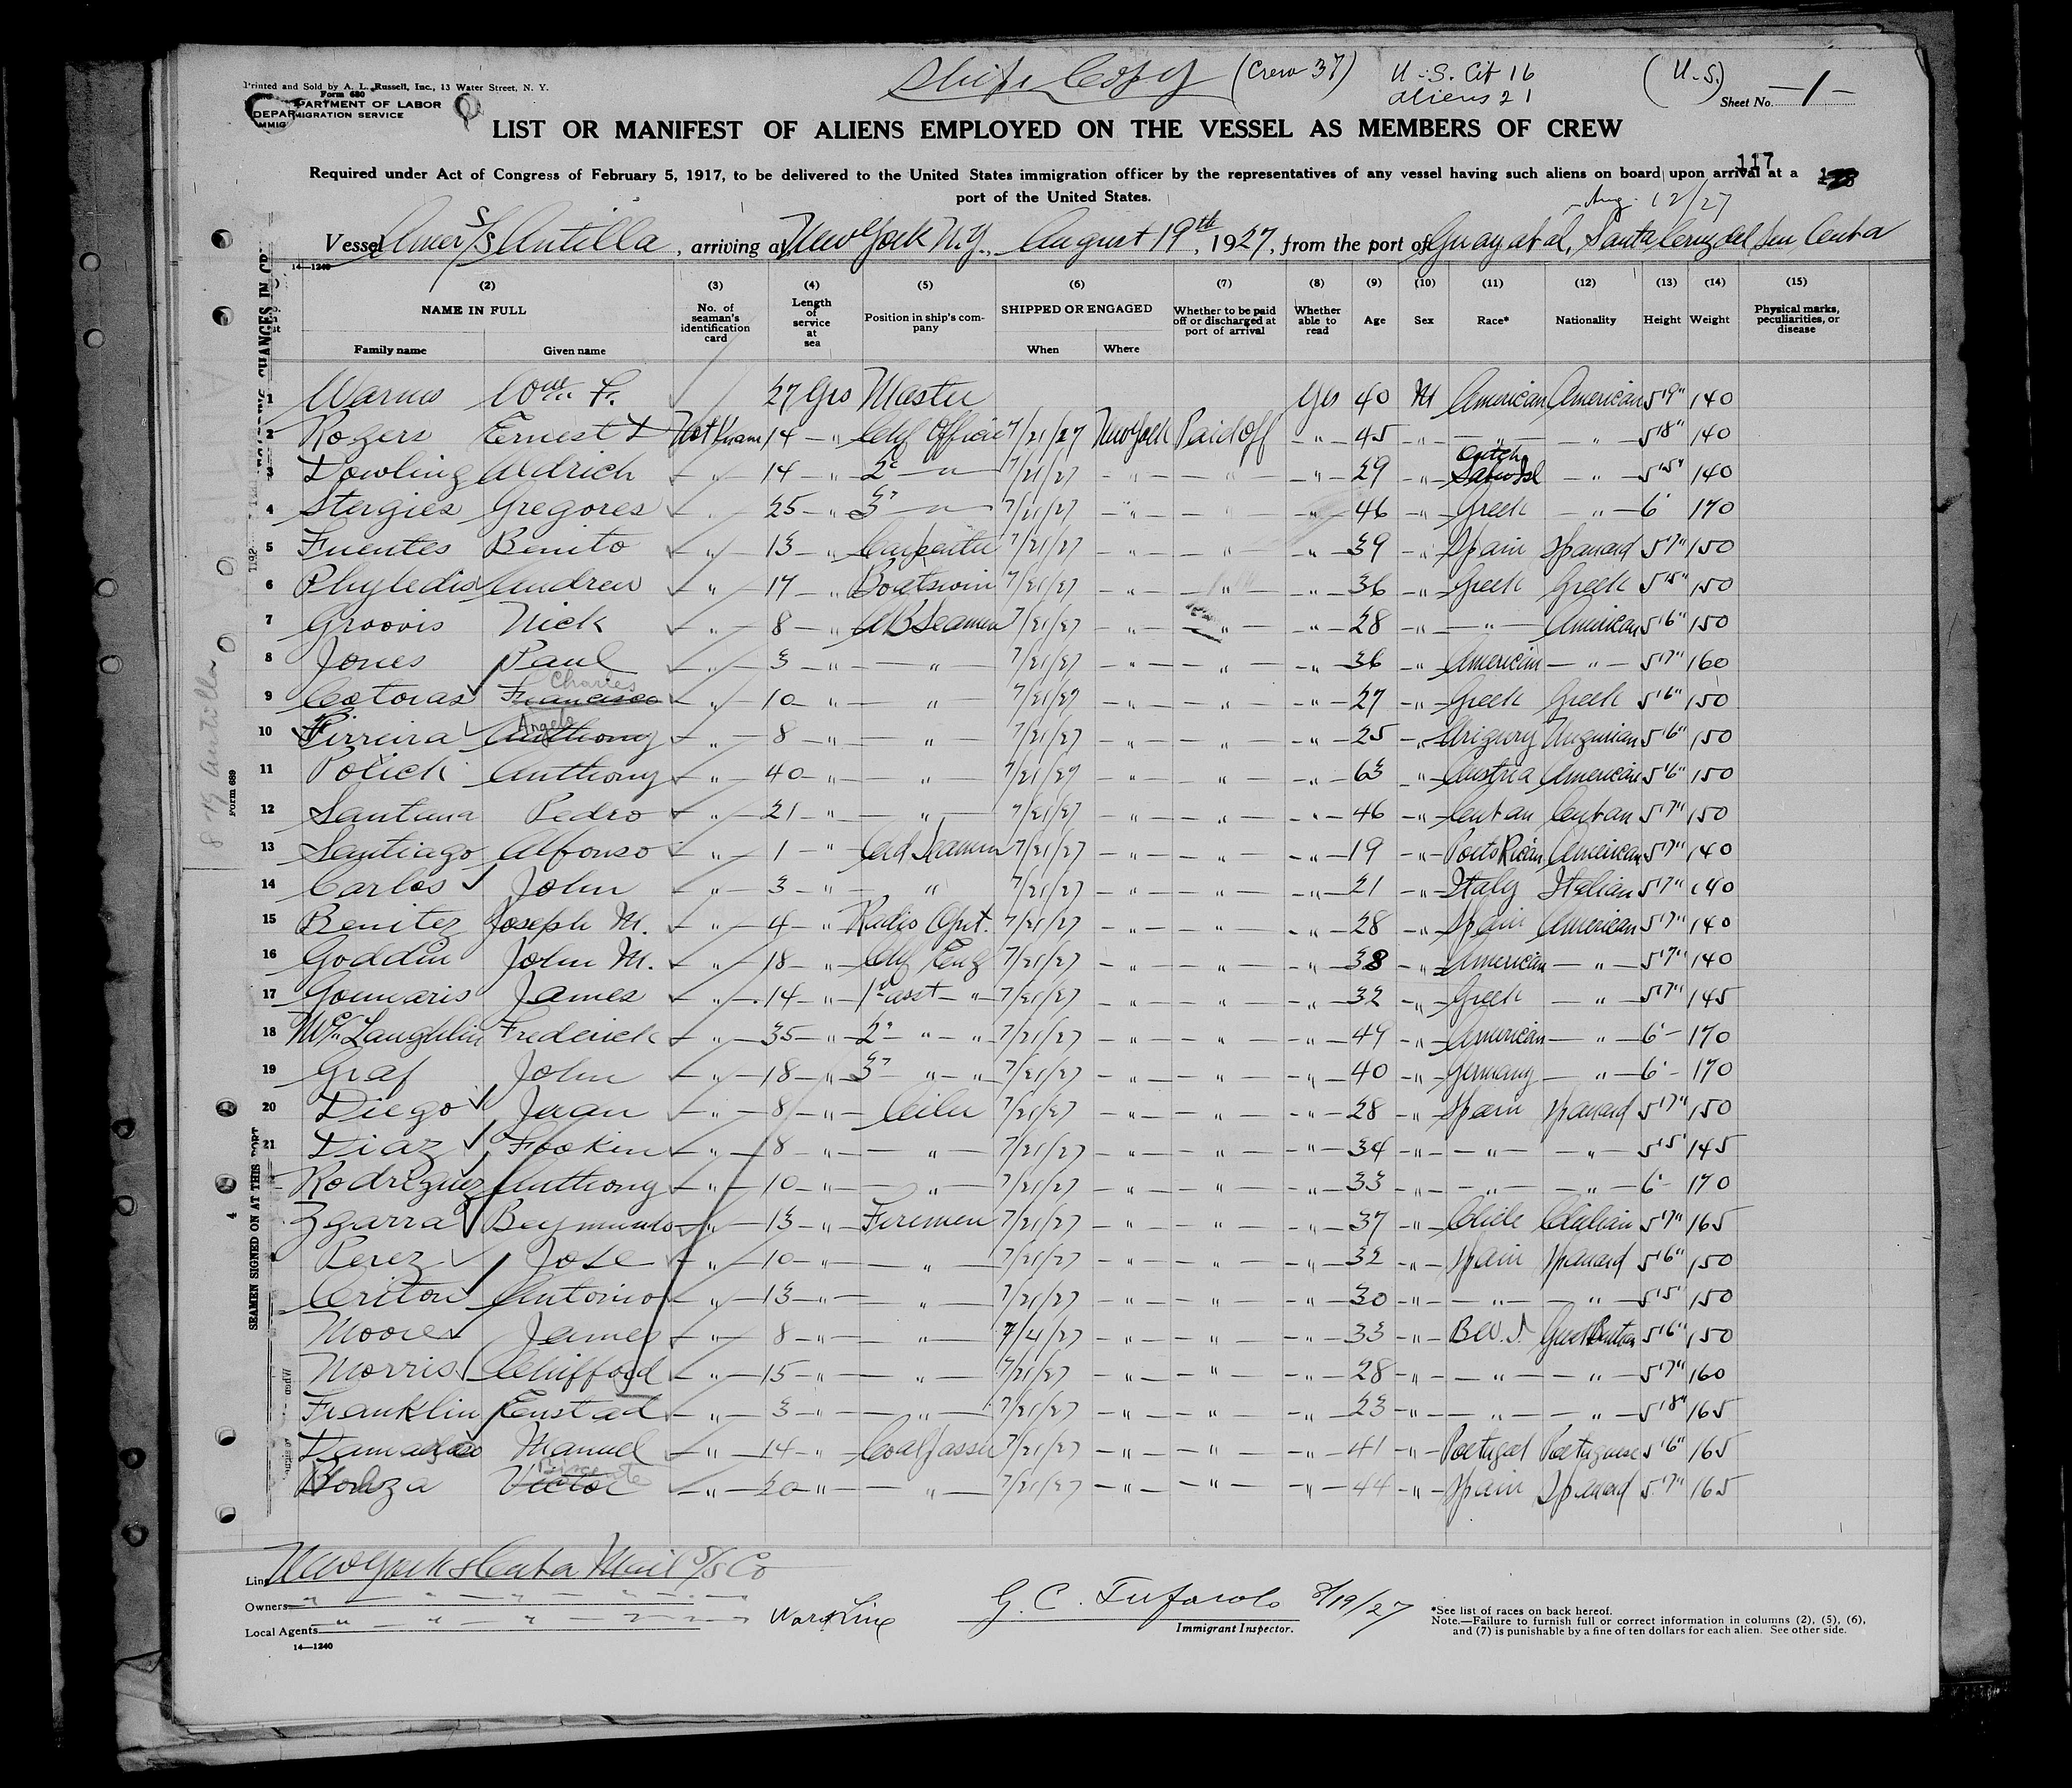 Printed and Sold by A. L. Russell, Inc., 13 Water Street, N. Y.
Form 680
DEPARTMENT OF LABOR
IMMIGRATION SERVICE
Ships Copy (Crew 37) U.S. Cit 16 (U.S.) Sheet No. -1-
aliens 21
LIST OR MANIFEST OF ALIENS EMPLOYED ON THE VESSEL AS MEMBERS OF CREW
117
Required under Act of Congress of February 5, 1917, to be delivered to the United States immigration officer by the representatives of any vessel having such aliens on board upon arrival at a
port of the United States.
Aug. 12/27
Vessel Amer S/S Antilla, arriving at New York N.Y., August 19th, 1927, from the port of Guayabal, Santa Cruz del Sur Cuba
14—1240
(2) (3) (4) (5) (6) (7) (8) (9) (10) (11) (12) (13) (14) (15)
NAME IN FULL No. of seaman's identification card Length of service at sea Position in ship's company SHIPPED OR ENGAGED Whether to be paid off or discharged at port of arrival Whether able to read Age Sex Race* Nationality Height Weight Physical marks, peculiarities, or disease
Family name Given name When Where
1 Warms Wm. F. 27 Yrs Master Yes 40 M American American 5'9" 140
2 Rogers Ernest Not Known 14 " Chf Officer 7/21/27 New York Paid off " 45 " " " 5'8" 140
3 Dowling Aldrich " 14 " 2d " 7/21/27 " " " 29 " Dutch " 5'5" 140
4 Stergies Gregores 25 " 3" " 7/21/27 " " " 46 " Greek " 6' 170
5 Fuentes Benito " 13 " Carpenter 7/21/27 " " " 39 " Spain Spanard 5'7" 150
6 Phyledis Andrew " 17 " Boatswin 7/21/27 " " " 36 " Greek Greek 5'5" 150
7 Groovis Nick " 8 " AB Seamen 7/21/27 " " " 28 " " American 5'6" 150
8 Jones Paul " 3 " " 7/21/27 " " " 36 " American " 5'7" 160
Charles
9 Cotoras Francisco " 10 " " 7/21/27 " " " 27 " Greek Greek 5'6" 150
Angelo
10 Firreira Anthony " 8 " " 7/21/27 " " " 25 " Urigury Uugurian 5'6" 150
11 Polich Anthony " 40 " " 7/21/27 " " " 63 " Austria American 5'6" 150
12 Santana Pedro " 21 " " 7/21/27 " " " 46 " Cuban Cuban 5'7" 150
13 Santiago Alfonso " 1 " Ord Seamen 7/21/27 " " " 19 " Porto Rican American 5'7" 140
14 Carlos John " 3 " " 7/21/27 " " " 21 " Italy Italian 5'7" 140
15 Benitez Joseph M. " 4 " Radio Oprt. 7/21/27 " " " 28 " Spain American 5'7" 140
16 Goddin John M. " 18 " Chf Eng 7/21/27 " " " 38 " American " 5'7" 140
17 Gounaris James " 14 " 1st asst " 7/21/27 " " " 32 " Greek " 5'7" 145
18 McLaughlin Frederick " 35 " 2" " " 7/21/27 " " " 47 " American " 6' 170
19 Graf John " 18 " 3" " " 7/21/27 " " " 40 " Germany " 6' 170
20 Diego Juan " 8 " Oiler 7/21/27 " " " 28 " Spain Spanard 5'7" 150
21 Diaz Fookin " 8 " " 7/21/27 " " " 34 " " " 5'5" 145
Rodriguez Anthony " 10 " " 7/21/27 " " " 33 " " " 6' 170
Zgarra Beymundo " 13 " Firemen 7/21/27 " " " 37 " Chile Chilian 5'7" 165
Perez Jose " 10 " " 7/21/27 " " " 32 " Spain Spanard 5'6" 150
Criton Antonio " 13 " " 7/21/27 " " " 30 " " " 5'5" 150
Moore James " 8 " " 7/21/27 " " " 33 " B.W.I. Great Britian 5'6" 150
Morris Chifford " 15 " " 7/21/27 " " " 28 " " " 5'7" 160
Franklin Eustad " 3 " " 7/21/27 " " " 23 " " " 5'8" 165
Manuel " 14 " Coal Passer 7/21/27 " " " 41 " Portugal Portuguese 5'6" 165
Victor " 20 " " 7/21/27 " " " 44 " Spain Spanard 5'7" 165
SEAMEN SIGNED ON AT THIS PORT
Form 689
8-19 Antilla
Line New York & Cuba Mail S/S Co
Owners " " " " "
Local Agents " " " " " Ward Line
G. C. Tufarolo 8/19/27
Immigrant Inspector.
14—1240
*See list of races on back hereof.
Note.—Failure to furnish full or correct information in columns (2), (5), (6),
and (7) is punishable by a fine of ten dollars for each alien. See other side.